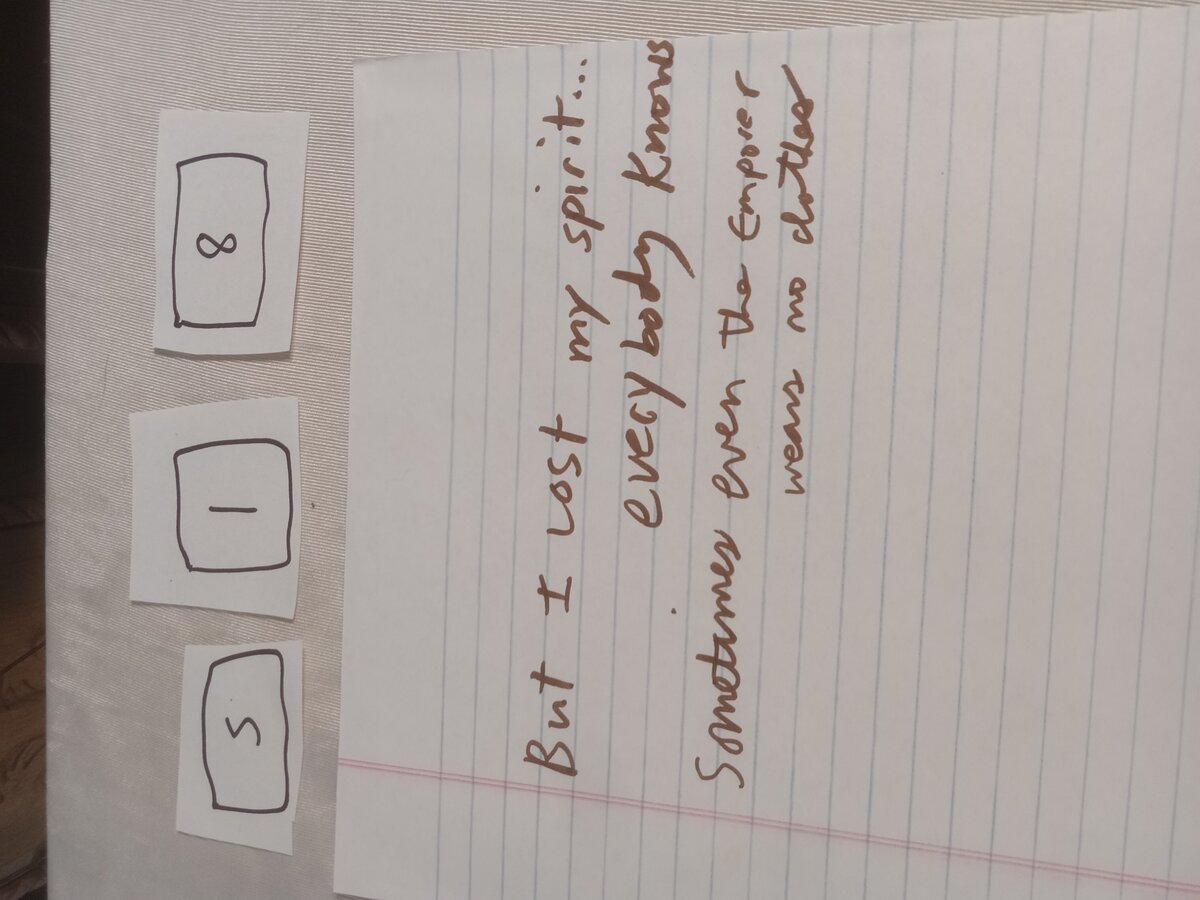 5 1 8
But I Lost my spirit...
every body Knows
Sometimes even the Emporer
wears no clothes